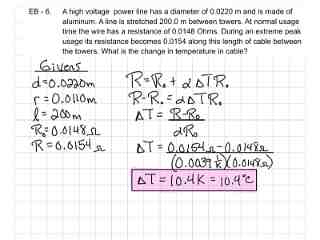 EB - 6. A high voltage power line has a diameter of 0.0220 m and is made of
aluminum. A line is stretched 200.0 m between towers. At normal usage
time the wire has a resistance of 0.0148 Ohms. During an extreme peak
usage its resistance becomes 0.0154 along this length of cable between
the towers. What is the change in temperature in cable?
Givens
d=0.0220m
r=0.0110m
l=200m
R₀=0.0148Ω
R=0.0154Ω
R=R₀+αΔTR₀
R-R₀=αΔTR₀
ΔT=R-R₀
αR₀
ΔT=0.0154Ω-0.0148Ω
(0.0039 1/K)(0.0148Ω)
ΔT=10.4K=10.4°C